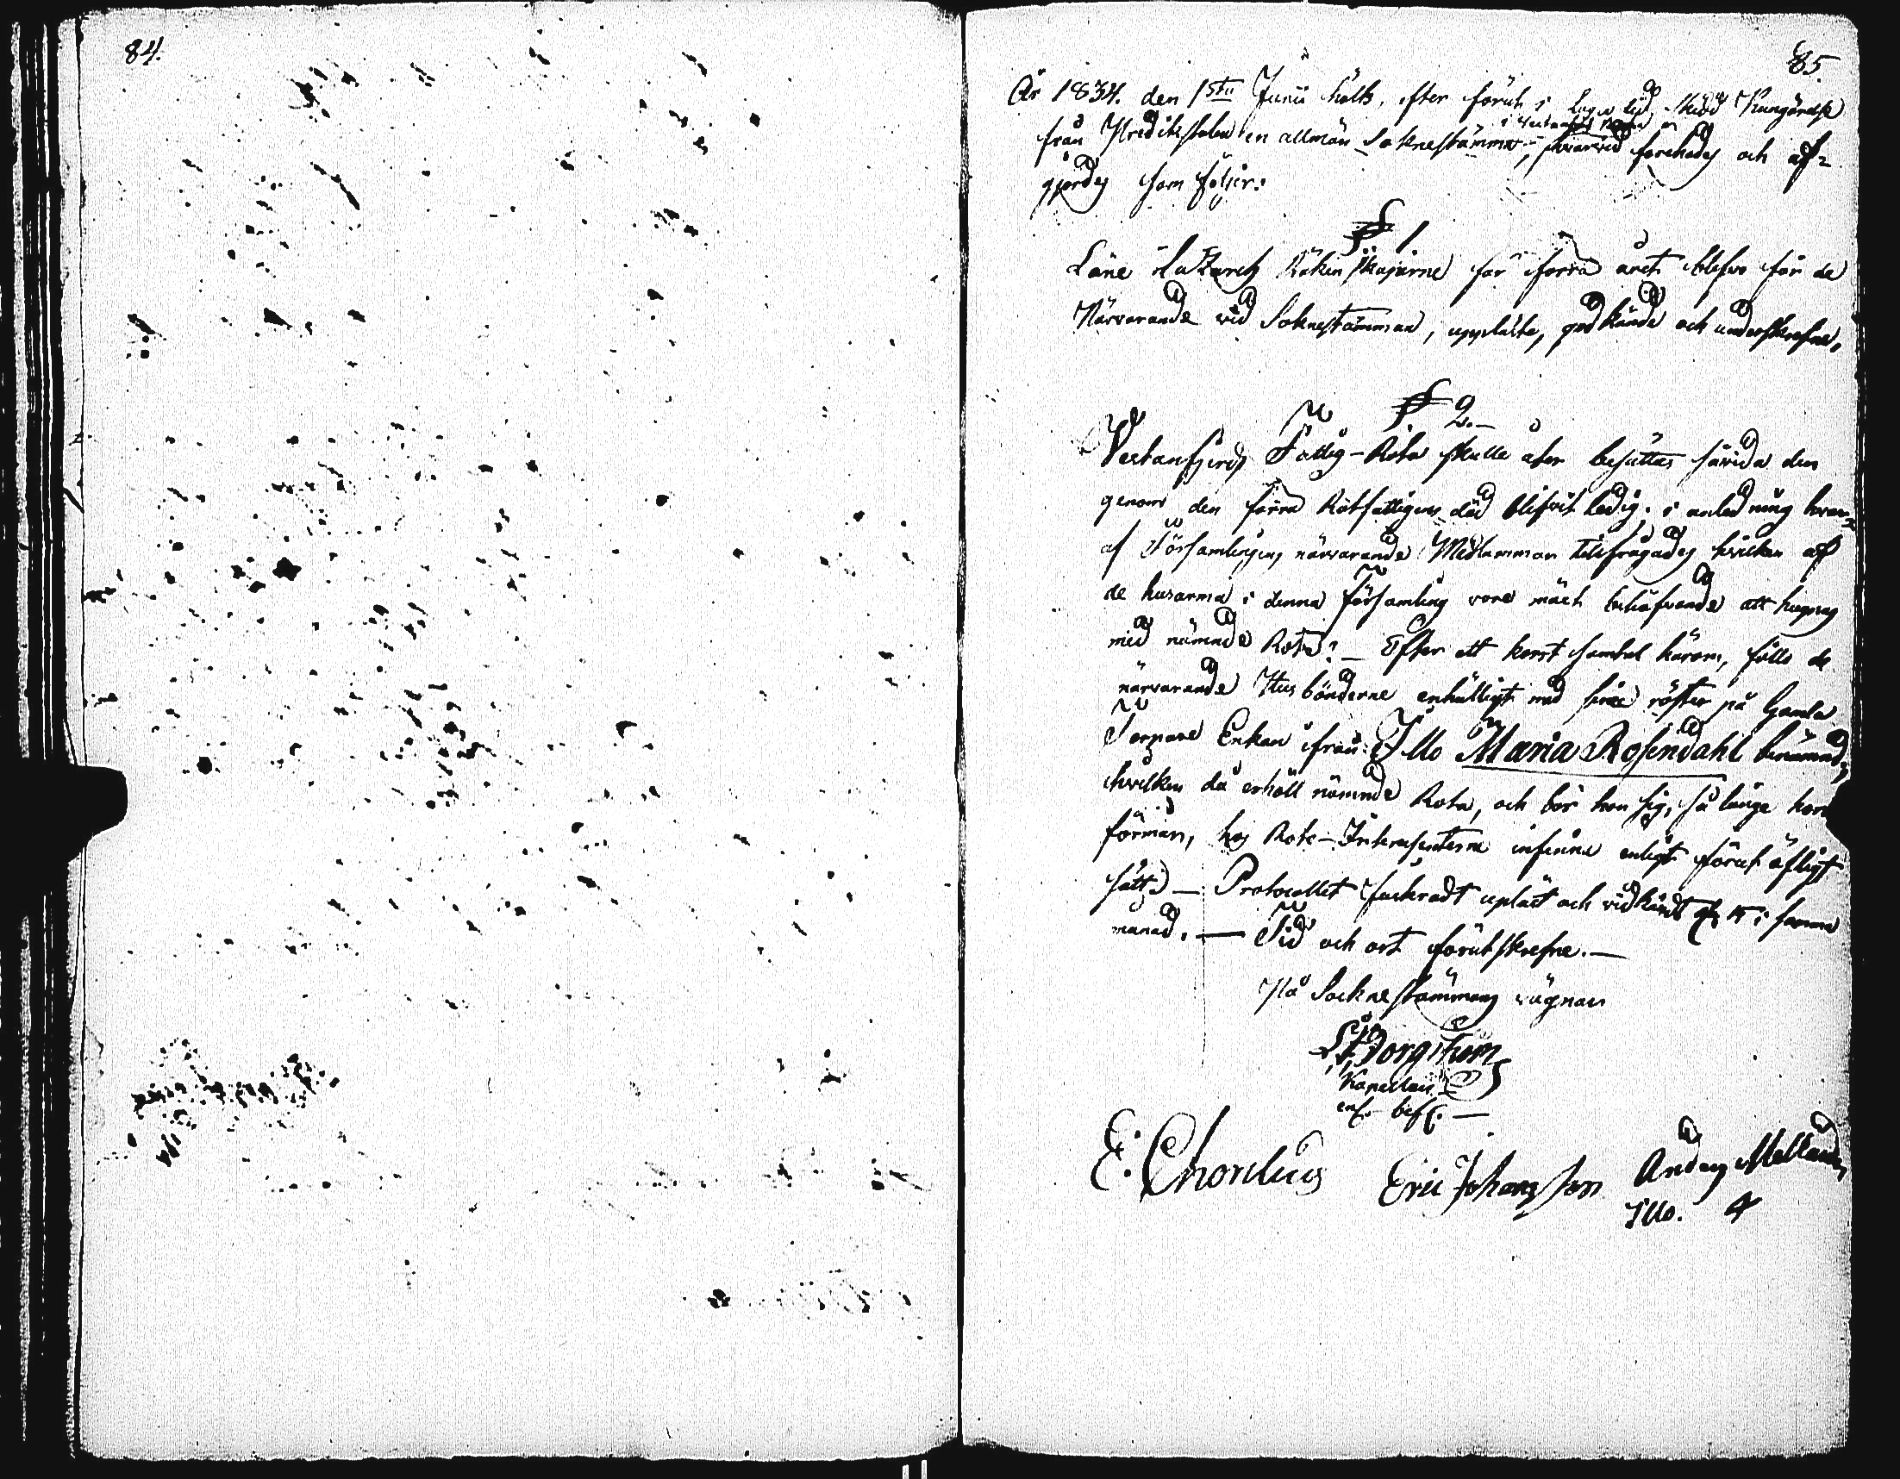 84.
85.
År 1834. den 1sta Junii hölts, efter förut i Laga tid skedd Kungörelse
från Predikstolen en allmän Soknestämma i Vestanfjerds, hvarvid förehades och af-
gjordes som följer:
§ 1
Låne Magazinets Räkenskaperne för förra året blefvo för de
Närvarande vid Soknestämman, upplästa, godkände och underskrefne.
§ 2.
Vestanfjerds Fattig-Rota skulle åter besättas såvida den
genom den förra Rotfattigens död blifvit ledig. i anledning hvar-
af Församlingens närvarande Medlemmar tillfrågades hvilken af
de husarma i denna Församling vore mäst behöfvande att hugnas
med nämnde Rota? – Efter ett kort samtal härom, föllo de
närvarande Husbönderne enhälligt med sine röster på Gamla
Torpare Enkan ifrån Illo Maria Rosendahl benämnd,
hvilken då erhöll nämnde Rota, och bör hon sig, så länge hon
förmår, hos Rote-Interessenterne infinna enligt förut öfligt
sätt. – Protocollet justeradt upläst och vidkändt i samma
månad. – Tid och ort förutskrefne. –
På Socknestämmans vägnar
Borgström
Kapellan
E. Chorelius Eric Johansson Anders Mellander
Illo.